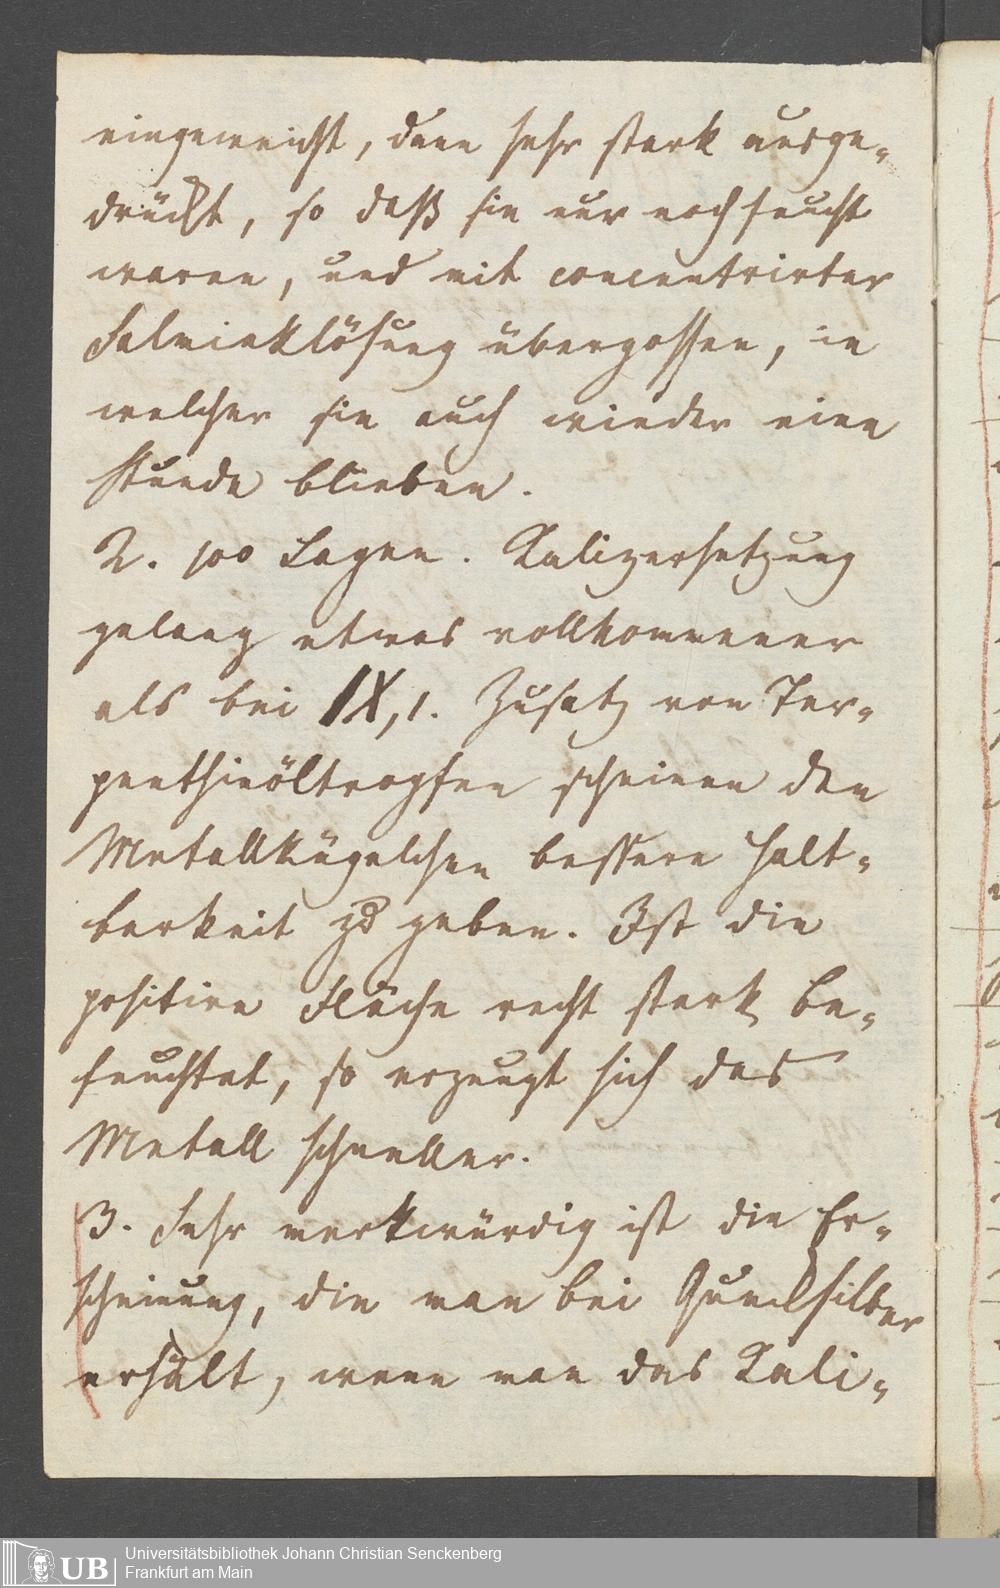 eingeweicht, dann sehr stark ausge-
drückt, so daß sie nur noch feucht
waren, und mit concentrirter
Salmiaklösung übergossen, in
welcher sie auch wieder eine
Stunde blieben.
2. 100 Lagen. Kalizersetzung
gelang etwas vollkommener
als bei IX, 1. Zusatz von Ter-
penthinöltropfen scheinen den
Metallkügelchen bessere Halt-
barkeit zu geben. Ist die
positive Fläche recht stark be-
feuchtet, so erzeugt sich das
Metall schneller.
3. Sehr merkwürdig ist die Er-
scheinung, die man bei Quecksilber
erhält, wenn man das Kali-
UB
Universitätsbibliothek Johann Christian Senckenberg
Frankfurt am Main